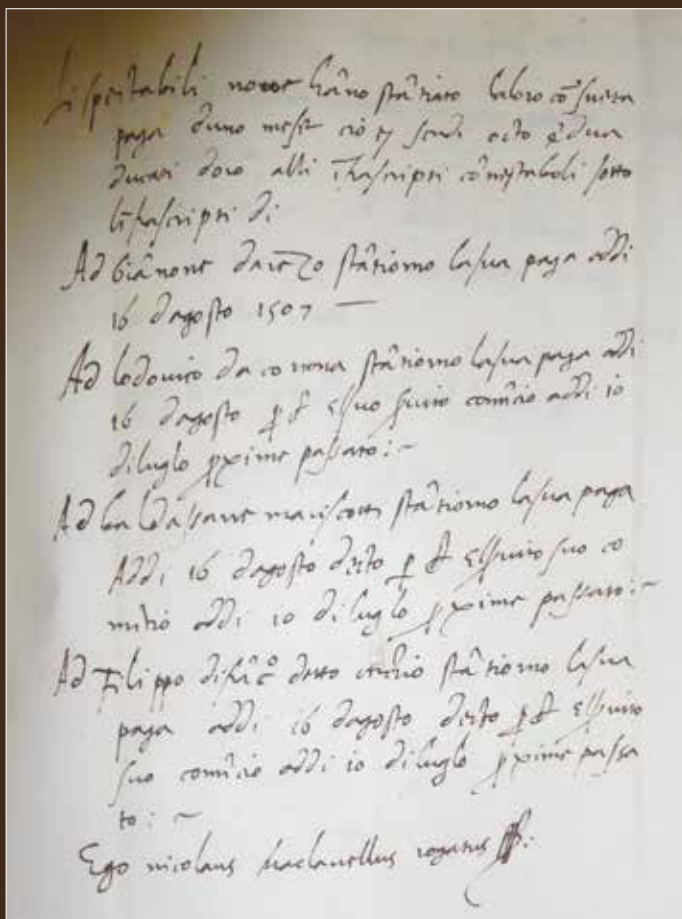 Li spectabili nove hãno stãtiato la loro cõsueta
paga duno mese cio e scudi octo e dua
ducati doro alli ĩfrascripti cõnestaboli sotto
lĩfrascripti di
Ad Giãnone darezo stãtiorno la sua paga addi
16 dagosto 1507 —
Ad lodovico da cortona stãtiorno la sua paga addi
16 dagosto el suo comĩcio addi 10
di luglo proxime passato :~
Ad baldassarre mariscotti stãtiorno la sua paga
Addi 16 dagosto decto suo co
mĩcio addi 10 di luglo proxime passato :~
Ad Filippo di decto stãtiorno la sua
paga addi 16 dagosto decto
suo comĩcio addi 10 di luglo proxime passa
to : ~
Ego nicolaus maclavellus rogatus